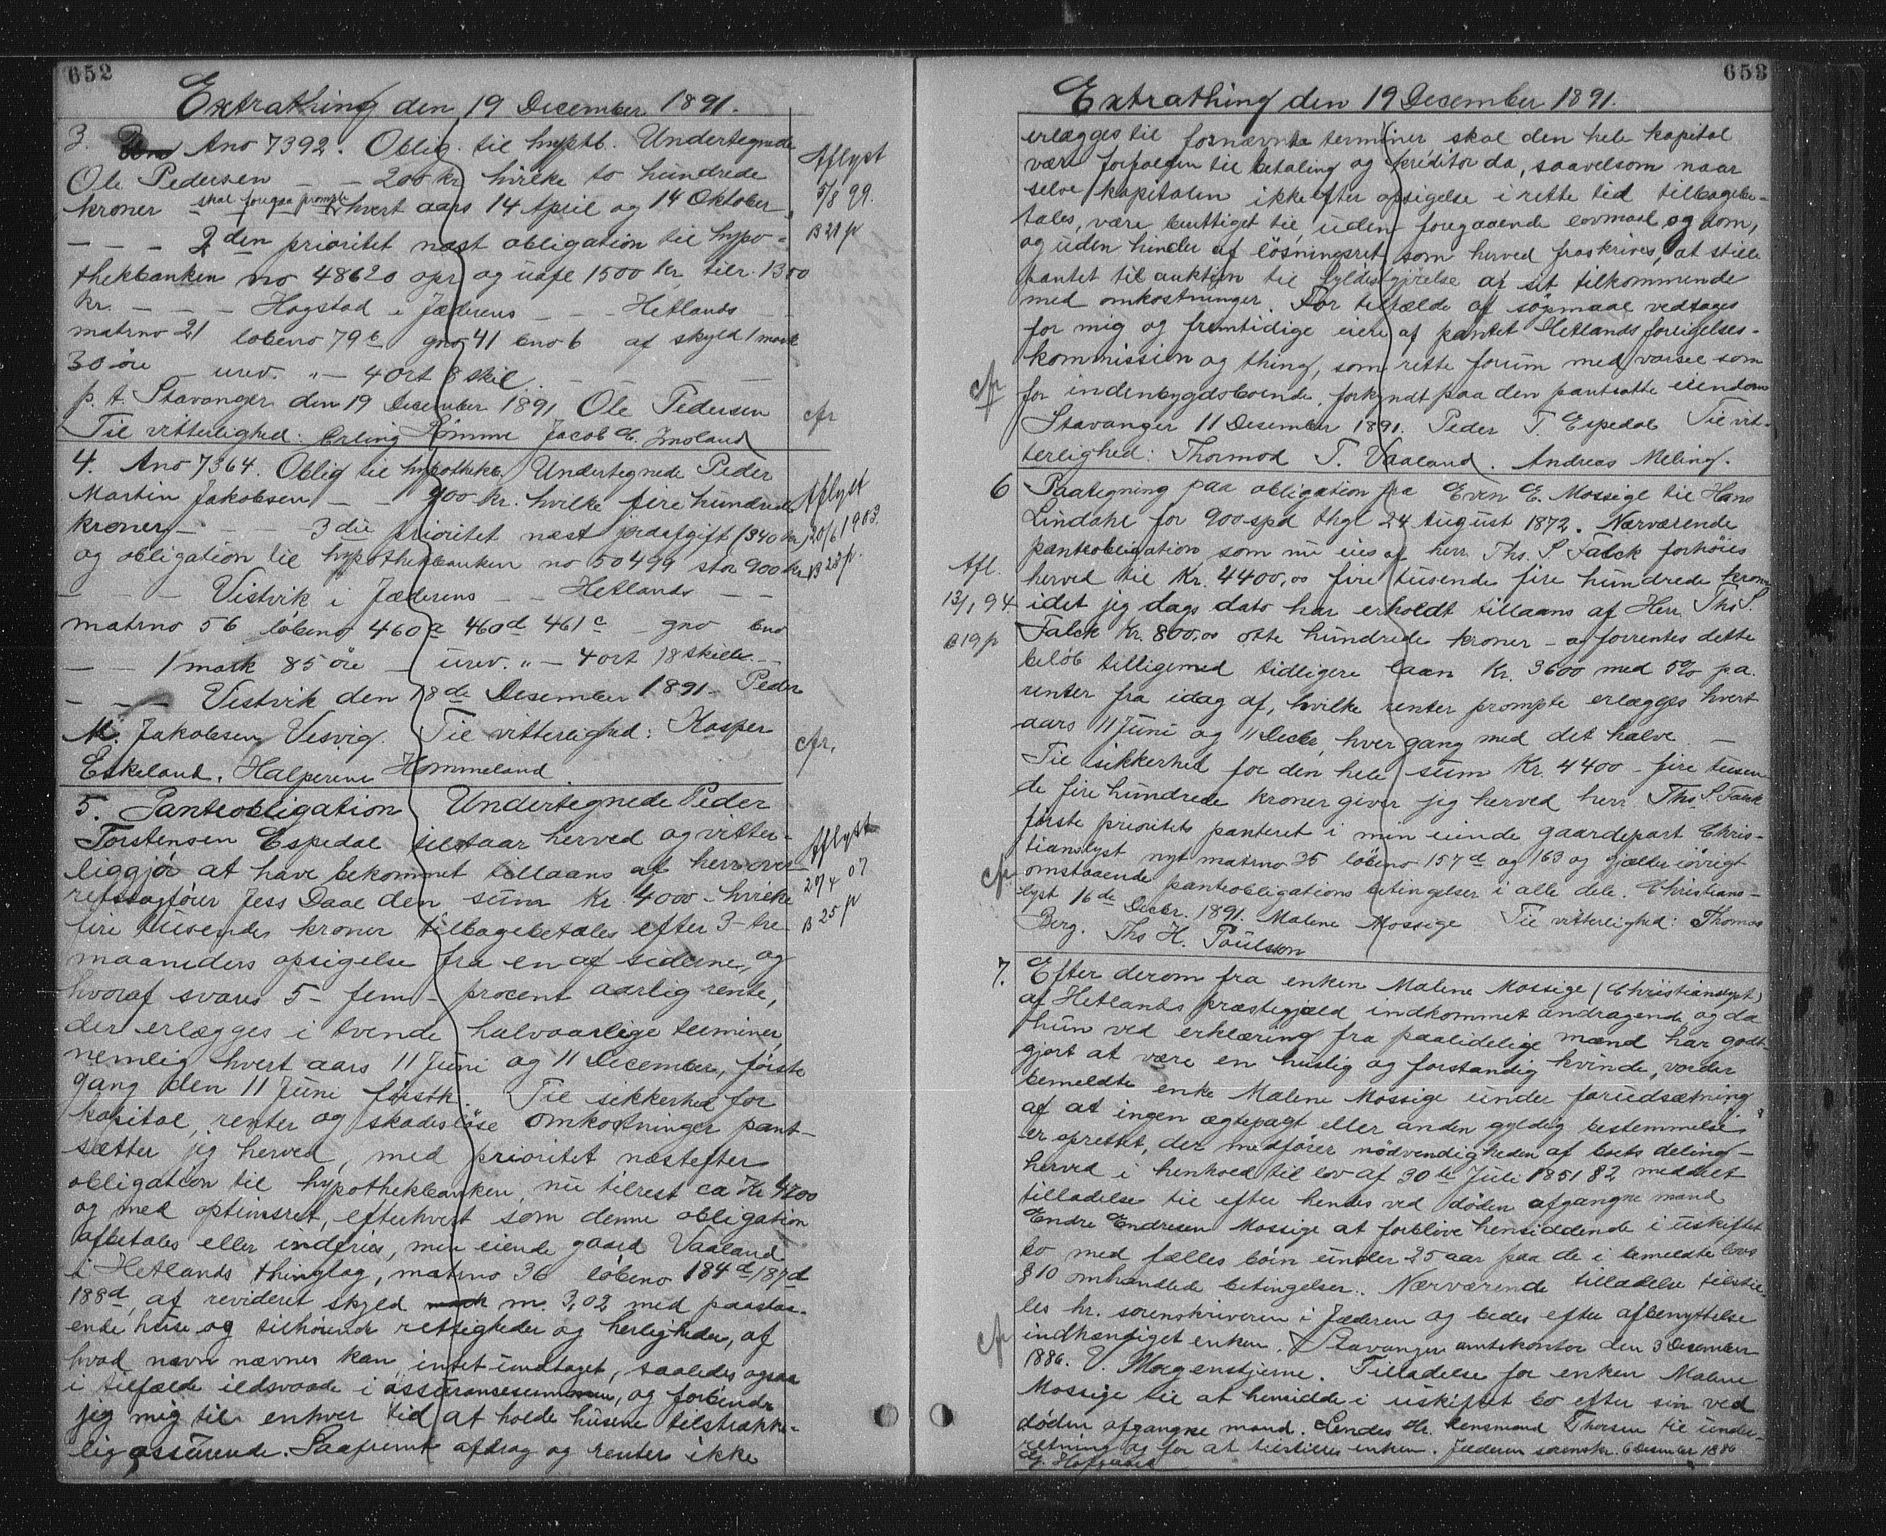 652
Extrathing den 19 December 1891.
3. Ano 7392. Oblig. til hypth. Undertegnede
Ole Pedersen — — 200 kr hvilke to hundrede
kroner — skal foregaa prompte hvert aars 14 April og 14 Oktober
— — — 2den prioritet næst obligation til hypo-
thekbanken no 48620 opr og uafl 1500 kr, tilr. 1350
kr. — — — Hogstad i Jæderens — — Hetlands —
matrno 21 løbeno 79 b gno 41 bno 6 af skyld 1 mark
30 öre — urev. „ — 4 ort 8 skil — — —
p. t. Stavanger den 19 December 1891 Ole Pedersen
Til vitterlighed: Erling Sømme Jacob E. Imsland
Aflyst
5/8 99.
B 21 p
cfr
4. Ano 7364. Oblig til hypothekb. Undertegnede Peder
Martin Jakobsen — — 400 kr. hvilke fire hundrede
kroner — — — 3die prioritet næst jordafgift (340 kr)
og obligation til hypothekbanken no 50499 stor 900 kr
— — — Vistvik i Jæderens — — Hetlands — —
matrno 56 løbeno 460 a 460 d 461 c — gno bno
— — 1 mark 85 öre — urev. „ — 4 ort 18 skill. —
— — — Vistvik den 18de Desember 1891 — Peder
M. Jakobsen Vesvig. Til vitterlighed: Kasper
Eskeland. Halperine Hommeland.
Aflyst
20/6 1903.
B 23 p.
cfr.
5. Panteobligation Undertegnede Peder
Torstensen Espedal tilstaar herved og vitter-
liggjör at have bekommet tillaans af herr over-
retssagfører Jess Daae den sum Kr. 4000 — hvilke
fire tusende kroner tilbagebetales efter 3 — tre
maaneders opsigelse fra en af siderne, og
hvoraf svares 5 — fem — procent aarlig rente,
der erlægges i tvende halvaarlige terminer,
nemlig hvert aars 11 Juni og 11 December, første
gang den 11 Juni førstk. Til sikkerhed for
kapital, renter og skadesløse omkostninger pant-
sætter jeg herved, med prioritet næstefter
obligation til hypothekbanken, nu tilrest ca Kr 4200
og med optionsret, efterhvert som denne obligation
afbetales eller indfries, min eiende gaard Vaaland
i Hetlands thinglag, matrno 36 løbeno 184 d, 187 d
188 d, af revideret skyld m. 3,02 med paastaa-
ende huse og tilhørende rettigheder og herligheder, af
hvad navn nævnes kan intet undtaget, saaledes ogsaa
i tilfælde ildsvaade i assuransesummen, og forbinder
jeg mig til enhver tid at holde husene tilstrække-
lig assurerede. Saafremt afdrag og renter ikke
Aflyst
27/4 07
B 25 p
653
Extrathing den 19 December 1891.
erlægges til fornævnte terminer skal den hele kapital
være forfalden til betaling og kreditor da, saavelsom naar
selve kapitalen ikke efter opsigelse i rette tid tilbagebe-
tales, være berettiget til, uden foregaaende lovmaal og dom,
og uden hinder af løsningsret som herved fraskrives, at stille
pantet til auktion til fyldestgjørelse af sit tilkommende
med omkostninger. For tilfælde af søgsmaal vedtages
for mig og fremtidige eiere af pantet Hetlands forligelses-
kommission og thing, som rette forum med varsel som
for indenbygdsboende, forkyndt paa den pantsatte eiendom
Stavanger 11 Desember 1891. Peder T. Espedal Til vit-
terlighed: Thormod T. Vaaland. Andreas Meling.
cfr
6 Paategning paa obligation fra Even E. Mossige til Hans
Lindahl for 900 spd thgl 24 August 1872. Nærværende
panteobligation som nu eies af herr Ths. S. Falck forhøies
herved til Kr. 4400,00 fire tusende fire hundrede kroner
idet jeg dags dato har erholdt tillaans af Herr Ths. S.
Falck Kr. 800,00 otte hundrede kroner — og forrentes dette
beløb tilligemed tidligere laan Kr. 3600 med 5% pa.
renter fra idag af, hvilke renter prompte erlægges hvert
aars 11 Juni og 11 Decbr, hver gang med det halve. —
Til sikkerhed for den hele sum Kr. 4400 — fire tusen-
de fire hundrede kroner giver jeg herved herr Ths. S. Falck
første prioritets panteret i min eiende gaardepart Chris-
tianslyst nyt matrno 35 løbeno 157 d og 163 og gjælder iøvrigt
omstaaende panteobligations betingelser i alle dele. Christians-
lyst 16de Decbr. 1891. Malene Mossige Til vitterlighed: Thomas
Berg. Ths H. Poulsson
Afl.
13/1 94
B 19 p
cfr
7. Efter derom fra enken Malene Mossige (Christianslyst)
af Hetlands præstegjeld indkommet andragende og da
hun ved erklæring fra paalidelige mænd har godt-
gjort at være en huslig og forstandig kvinde, vorder
bemeldte enke Malene Mossige under forudsætning
af at ingen ægtepagt eller anden gyldig bestemmelse
er oprettet, der medfører nödvendigheden af boets deling —
herved i henhold til lov af 30te Juli 1851 § 2 meddelt
tilladelse til efter hendes ved døden afgangne mand
Endre Endresen Mossige at forblive hensiddende i uskiftet
bo med fælles börn under 25 aar paa de i bemeldte lovs
§ 10 omhandlede betingelser. Nærværende tilladelse tilstil-
les hr. sorenskriveren i Jæderen og bedes efter afbenyttelse
indhændiget enken. Stavanger amtskontor den 3 Desember
1886. V. Morgenstjerne. Tilladelse for enken Malene
Mossige til at hensidde i uskiftet bo efter sin ved
døden afgangne mand. Sendes Hr. Lensmand Thorsen til under-
retning og for at tilstilles enken. Jæderen sorenskr. 6 Desember 1886
cfr